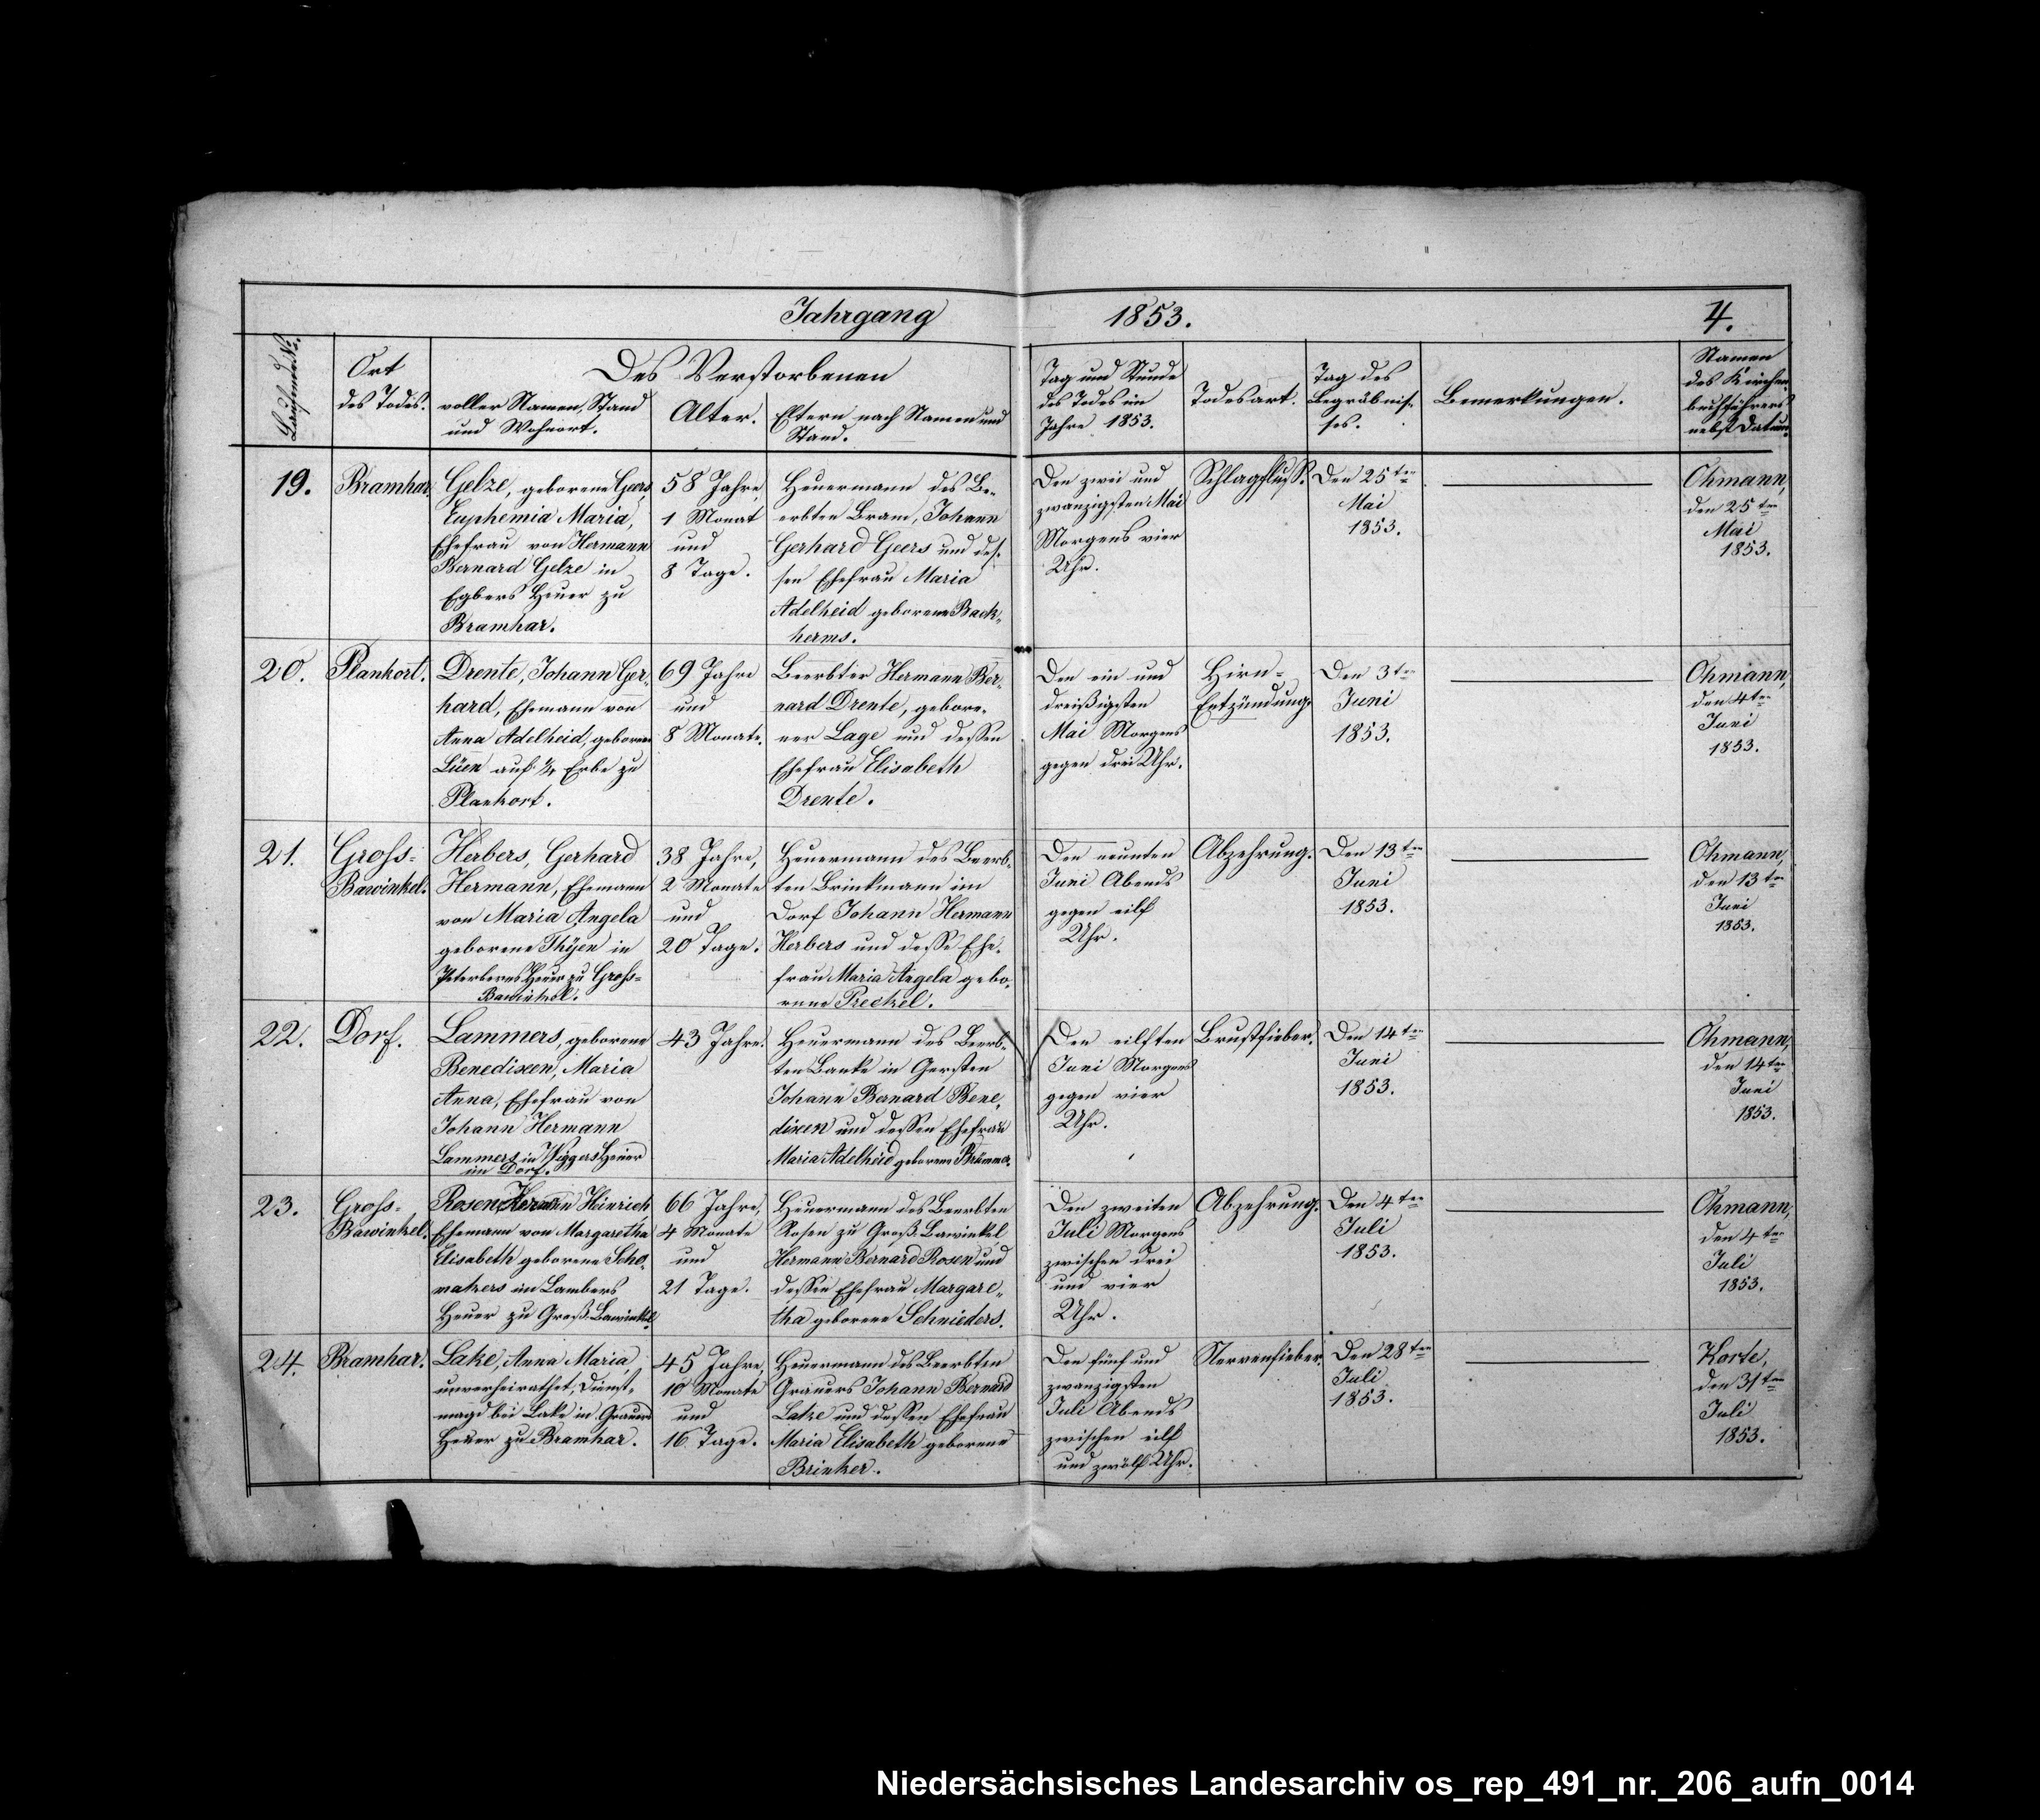 Jahrgang 1853. 4.
Laufende No.
Ort
des Todes.
Des Verstorbenen
voller Namen, Stand
und Wohnort.
Alter.
Eltern nach Namen und
Stand.
Tag und Stunde
des Todes im
Jahre 1853.
Todesart.
Tag des
Begräbnis-
ses.
Bemerkungen.
Namen
des Kirchen-
buchführers
nebst Datum.
19.
Bramhar.
Gelze, geborene Geers
Euphemia Maria,
Ehefrau von Hermann
Bernard Gelze in
Egbers Heuer zu
Bramhar.
58 Jahre,
1 Monat
und
8 Tage.
Heuermann des Be-
erbten Bram, Johann
Gerhard Geers und des-
sen Ehefrau Maria
Adelheid geborene Back-
herms.
Den zwei und
zwanzigsten Mai
Morgens vier
Uhr.
Schlagfluß.
Den 25ten
Mai
1853.
Ohmann,
den 25ten
Mai
1853.
20.
Plankort.
Drente, Johann Ger-
hard, Ehemann von
Anna Adelheid, geborene
Lüen auf ¼ Erbe zu
Plankort.
69 Jahre
und
8 Monate.
Beerbter Hermann Ber-
nard Drente, gebore-
ner Lage und dessen
Ehefrau Elisabeth
Drente.
Den ein und
dreißigsten
Mai Morgens
gegen drei Uhr.
Hirn-
Entzündung.
Den 3ten
Juni
1853.
Ohmann,
den 4ten
Juni
1853.
21.
Gross-
Bawinkel.
Herbers, Gerhard
Hermann, Ehemann
von Maria Angela
geborene Thÿen in
Heuer zu Gross-
Bawinkel.
38 Jahre,
2 Monate
und
20 Tage.
Heuermann des Beerb-
ten Brinkmann im
Dorf Johann Hermann
Herbers und desse Ehe-
frau Maria Angela gebo-
rene Preckel.
Den neunten
Juni Abends
gegen eilf
Uhr.
Abzehrung.
Den 13ten
Juni
1853.
Ohmann,
den 13ten
Juni
1853.
22.
Dorf.
Lammers, geborene
Benedixen, Maria
Anna, Ehefrau von
Johann Hermann
Lammers in Wiggers Heuer
im Dorf.
43 Jahre.
Heuermann des Beerb-
ten Banke in Gersten
Johann Bernard Bene-
dixen und dessen Ehefrau
Maria Adelheid geborene
Den eilften
Juni Morgens
gegen vier
Uhr.
Brustfieber.
Den 14ten
Juni
1853.
Ohmann,
den 14ten
Juni
1853.
23.
Gross-
Bawinkel.
Rosen Hermann Heinrich
Ehemann von Margaretha
Elisabeth geborene Scho-
makers im Lambers
Heuer zu Groß-Bawinkel
66 Jahre,
4 Monate
und
21 Tage.
Heuermann des Beerbten
Rosen zu Groß-Bawinkel
Hermann Bernard Rosen und
dessen Ehefrau Margare-
tha geborene Schnieders.
Den zweiten
Juli Morgens
zwischen drei
und vier
Uhr.
Abzehrung.
Den 4ten
Juli
1853.
Ohmann,
den 4ten
Juli
1853.
24.
Bramhar.
Lake, Anna Maria,
unverheirathet, Dienst-
magd bei Lake in Grauers
Heuer zu Bramhar.
45 Jahre,
10 Monate
und
16 Tage.
Heuermann des Beerbten
Grauers Johann Bernard
Lake und dessen Ehefrau
Maria Elisabeth geborene
Brinker.
Den fünf und
zwanzigsten
Juli Abends
zwischen eilf
und zwölf Uhr.
Nervenfieber.
Den 28ten
Juli
1853.
Korte,
den 31ten
Juli
1853.
Niedersächsisches Landesarchiv os_rep_491_nr._206_aufn_0014